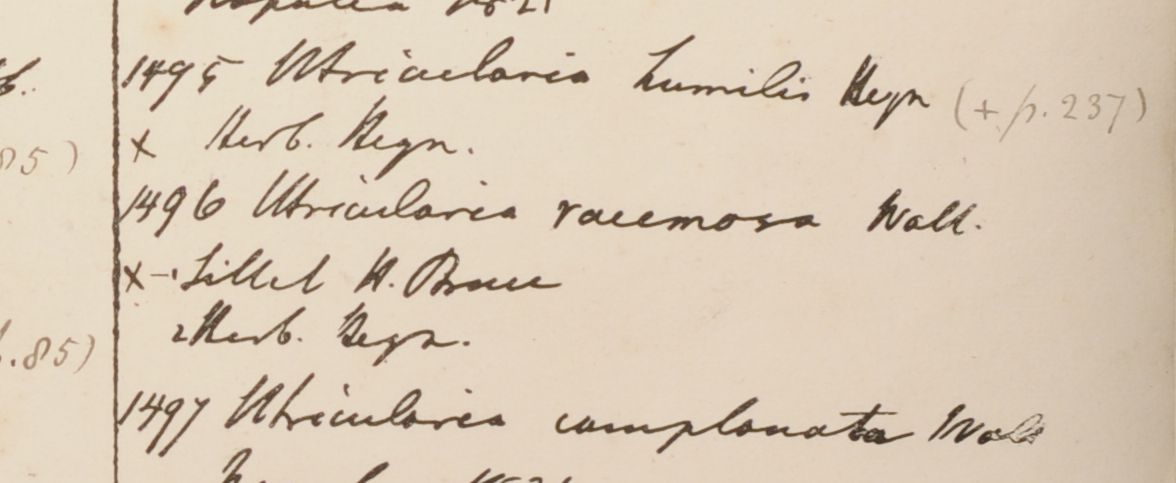 Napalia 1821
1495 Utricularia humilis Heyn (+ p. 237)
x Herb. Heyn.
1496 Utricularia racemosa Wall.
x -. Sillet H. Bruce
2 Herb. Heyn.
1497 Utricularia complanata Wall
85)
.85)